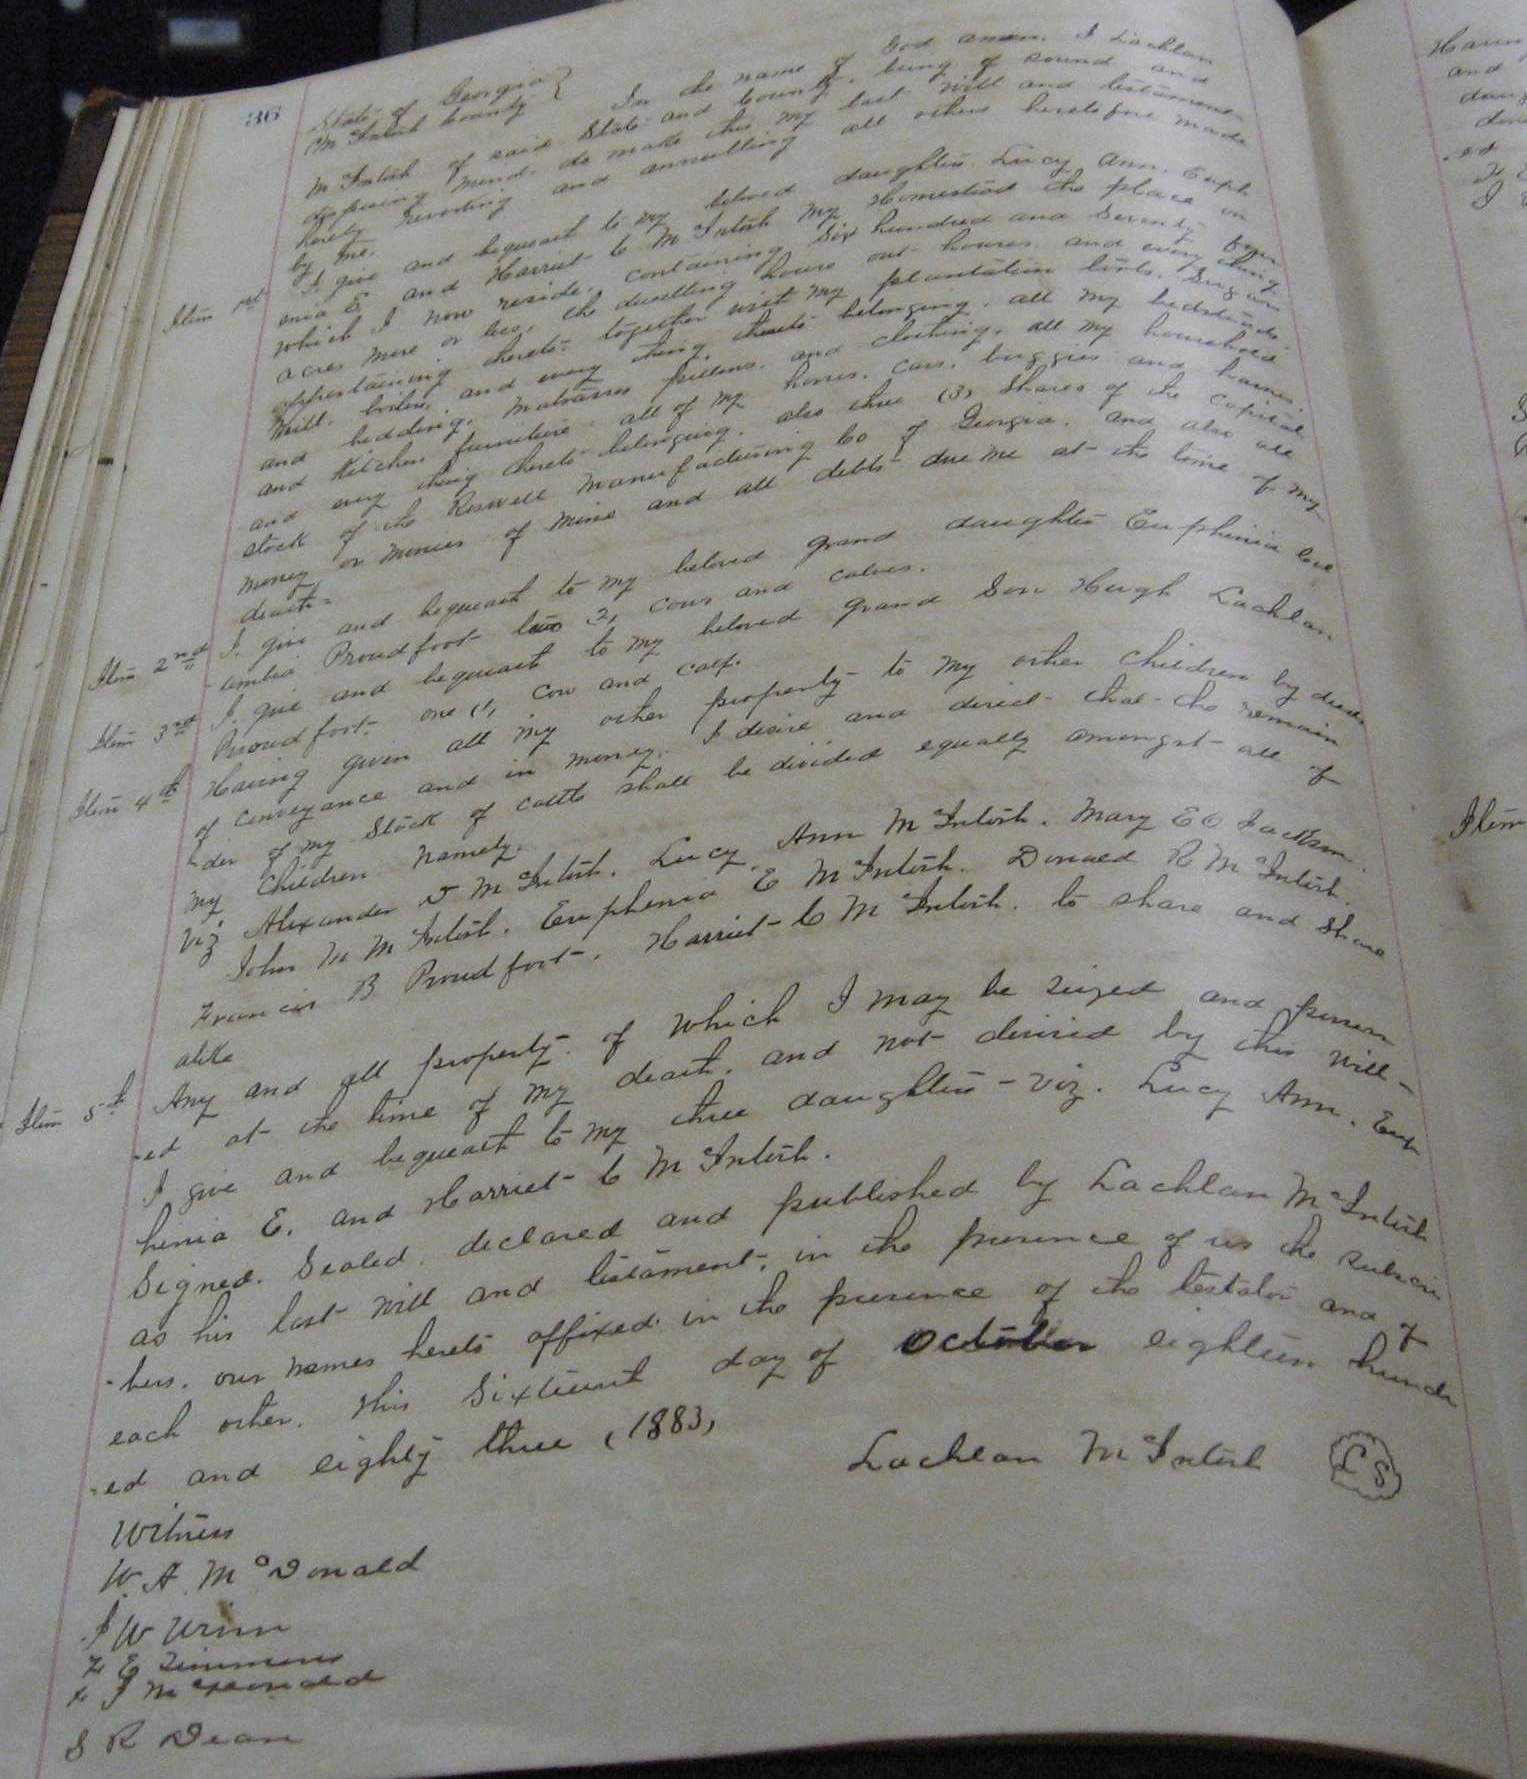 36
State of Georgia }
McIntosh County } In the name of God amen. I Lachlan
McIntosh of said State and County, being of sound and
disposing mind, do make this my last will and testament
hereby revoking and annulling all others heretofore made
by me.
Item 1st I give and bequeath to my beloved daughters Lucy Ann, Euph
enia E, and Harriet C McIntosh my Homestead the place on
which I now reside, containing Six hundred and Seventy four
acres more or less, the dwelling house out-houses and every thing
appertaining thereto- together with my plantation tools, Sugar
Mill, boilers, and every thing thereto belonging, all my bedsteads,
and bedding, Matrasses pillows, and clothing, all my household
and Kitchen furniture all of my horses, cars, buggies and harness,
and every thing thereto belonging, also three (3) Shares of the capital
stock of the Roswell Manufacturing Co of Georgia, and also all
money or monies of mine and all debts due me at the time of my
death-
Item 2nd I give and bequeath to my beloved grand daughter Euphinia
Proudfoot two 2, cows and calves.
Item 3rd I give and bequeath to my beloved grand Son Hugh Lachlan
Proudfoot, one (1, cow and calf.
Item 4th Having given all my other property to my other children by deeds
of conveyance and in money, I desire and direct that the remain
-der of my Stock of cattle shall be divided equally amongst all of
my children namely.
Viz Alexander McIntosh, Lucy Ann McIntosh, Mary E Jackson
John M McIntosh, Euphenia E McIntosh, Donald R McIntosh,
Francis B Proudfoot, Harriet C McIntosh, to share and share
alike
Item 5th Any and all property of which I may be seized and possess
-ed at the time of my death, and not devised by this will-
I give and bequeath to my three daughters - viz. Lucy Ann, Eup
henia E, and Harriet C McIntosh.
Signed, Sealed, declared and published by Lachlan McIntosh
as his last will and testament, in the presence of us the subscri
-bers, our names hereto affixed in the presence of the testator and of
each other, this Sixteenth day of October eighteen hundr
-ed and eighty three (1883)
Lachlan McIntosh LS
Witness
W. A. McDonald
J W Wrinn
E Timmons
J McDonald
S R Dean
Item